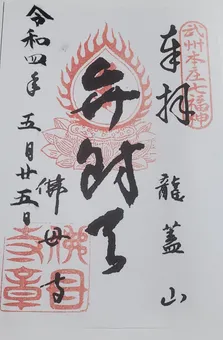 奉拝
武州本庄七福神
龍蓋山
弁財天
佛母寺
令和四年五月廿五日
佛母寺章